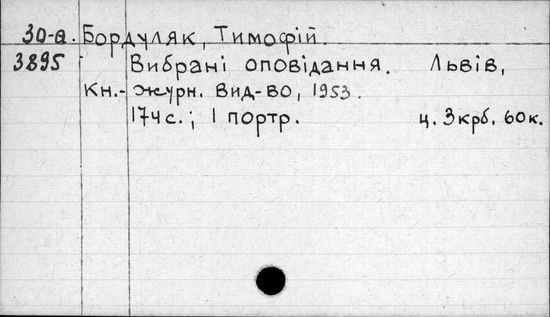 30-а. Бордуляк, Тимофій.
3895 Вибрані оповідання. Львів,
Кн.-журн. вид-во, 1953.
174 с.; 1 портр. ц. 3 крб. 60 к.